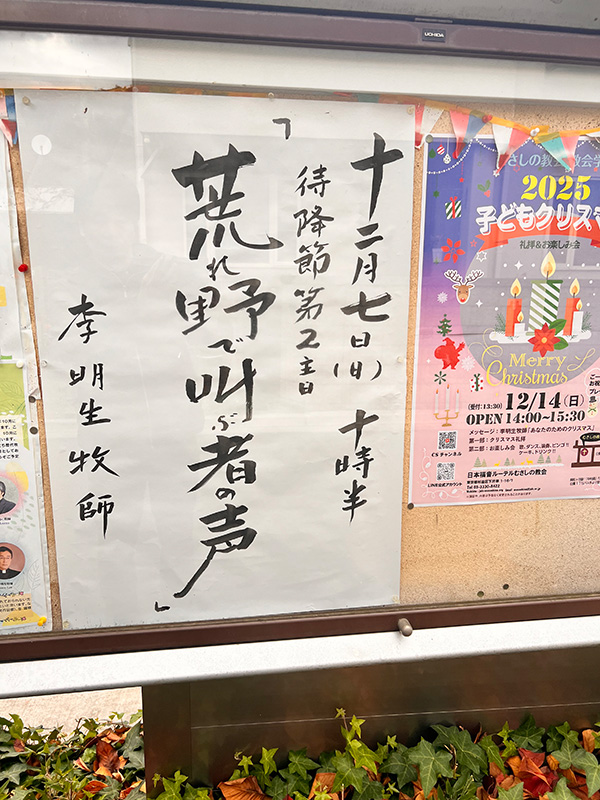 UCHIDA
十二月七日(日) 十時半
待降節第2主日
「荒れ野で叫ぶ者の声」
李明生牧師
むさしの教会 教会学
2025
子どもクリスマ
礼拝&お楽しみ会
Merry
Christmas
(受付:13:30) 12/14(日)
OPEN 14:00~15:30
メッセージ:李明生牧師「あなたのためのクリスマス」
第一部:クリスマス礼拝
第二部:お楽しみ会
CS チャンネル
LINE公式アカウント
日本福音ルーテルむさしの教会